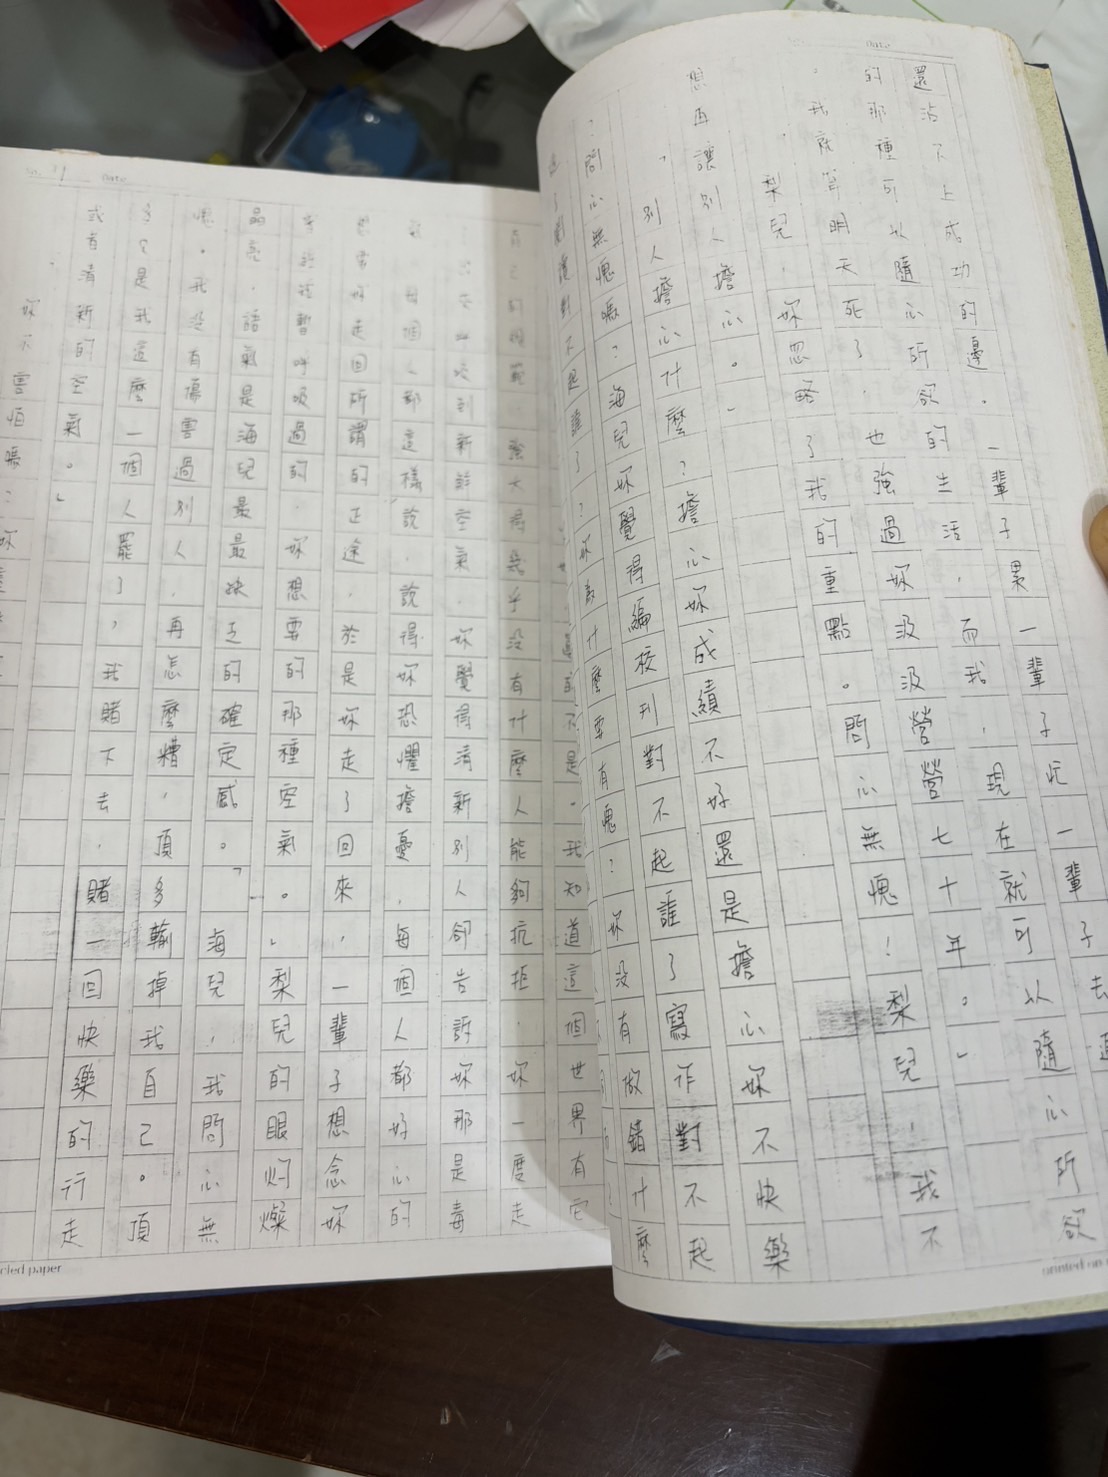 還沾不上成功的邊。一輩子累一輩子忙一輩子去追
的那種可以隨心所欲的生活,而我,現在就可以隨心所欲
。我就算明天死了,也強過妳汲汲營營七十年。」
梨兒,妳忽略了我的重點。問心無愧!梨兒,我不
想再讓別人擔心。」
,別人擔心什麼?擔心妳成績不好還是擔心妳不快樂
?問心無愧嗎?海兒妳覺得編校刊對不起誰了寫作對不起
對不起誰了?妳為什麼要有愧?妳沒有做錯什麼
不是。我知道這個世界有它
強大得幾乎沒有什麼人能夠抗拒,妳一度走
到新鮮空氣,妳覺得清新別人卻告訴妳那是毒
每個人都這樣說,說得妳恐懼擔憂,每個人都好心的
好走回所謂的正途,於是妳走了回來,一輩子想念妳
暫呼吸過的,妳想要的那種空氣。」梨兒的眼灼燦
晶亮,語氣是海兒最最缺乏的確定感。「海兒,我問心無
愧。我沒有傷害過別人,再怎麼糟,頂多輸掉我自己。頂
多只是我這麼一個人罷了,我賭下去,賭一回快樂的行走
或者清新的空氣。」
妳不害怕嗎?妳